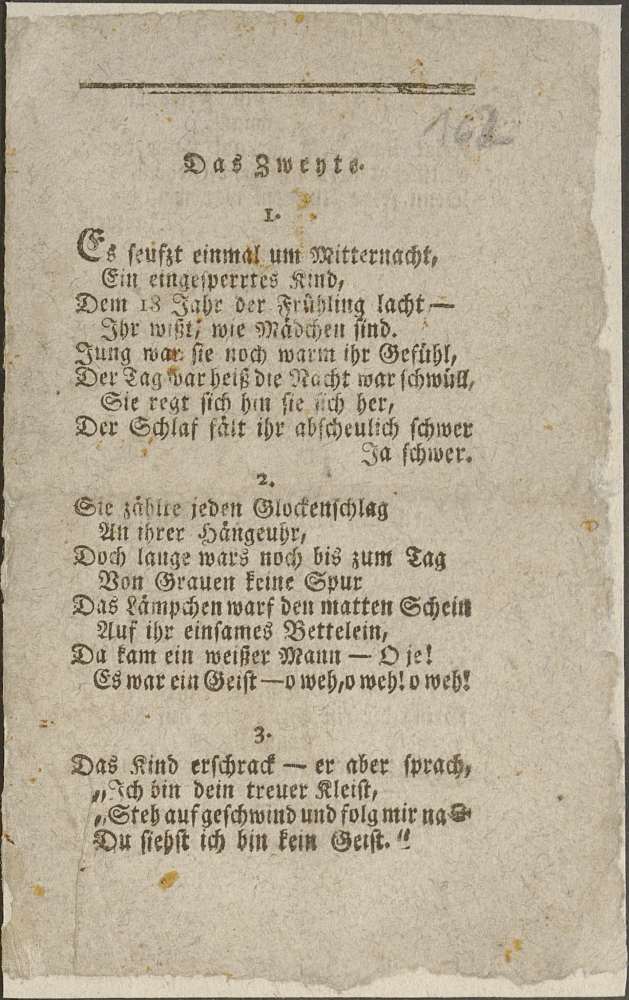 162
Das Zweyte.
1.
Es seufzt einmal um Mitternacht,
Ein eingesperrtes Kind,
Dem 18 Jahr der Frühling lacht —
Ihr wißt, wie Mädchen sind.
Jung war sie noch warm ihr Gefühl,
Der Tag war heiß die Nacht war schwüll,
Sie regt sich hin sie sich her,
Der Schlaf fält ihr abscheulich schwer
Ja schwer.
2.
Sie zählte jeden Glockenschlag
An ihrer Hängeuhr,
Doch lange wars noch bis zum Tag
Von Grauen keine Spur
Das Lämpchen warf den matten Schein
Auf ihr einsames Bettelein,
Da kam ein weißer Mann — O je!
Es war ein Geist — o weh, o weh! o weh!
3.
Das Kind erschrack — er aber sprach,
„Ich bin dein treuer Kleist,
„Steh auf geschwind und folg mir nach
Du siehst ich bin kein Geist.“